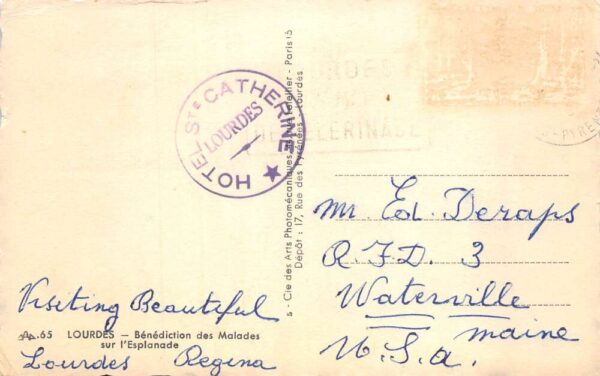 HOTEL STE CATHERINE
LOURDES
LOURDES
DE PELERINAGE
Cie des Arts Photomécaniques
- Paris 15
Dépôt : 17, Rue des Pyrénées - Lourdes
Mr Ed. Deraps
R.F.D. 3
Waterville
maine
U.S.A.
Visiting Beautiful
65 LOURDES — Bénédiction des Malades
sur l'Esplanade
Lourdes Regina